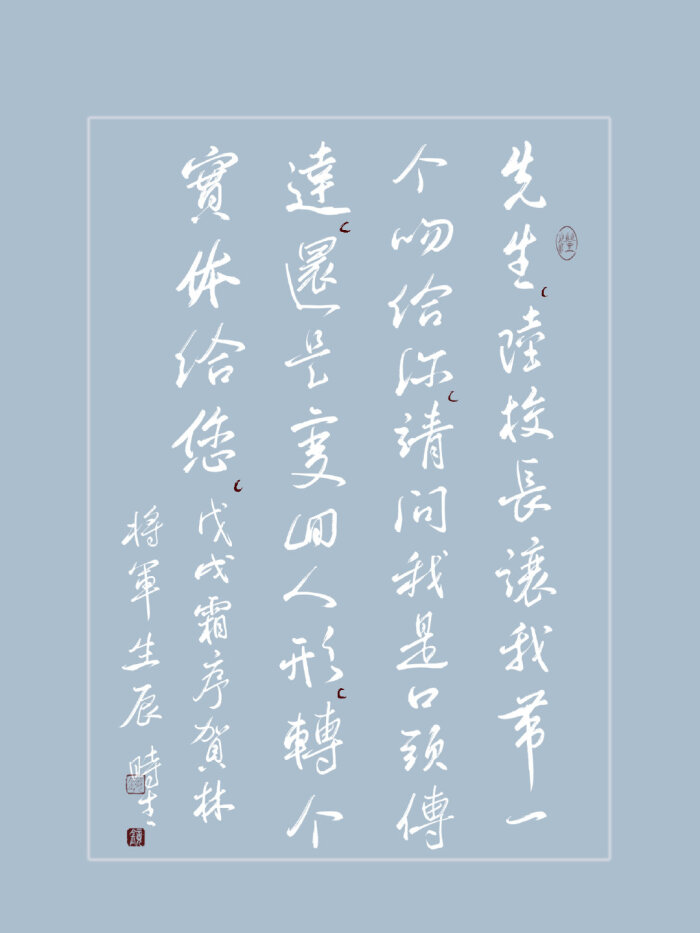 先生陸校長讓我帶一
个吻給你請问我是口頭傳
達還是变回人形轉个
實体给您戊戌霜序賀林
將軍生辰 時生